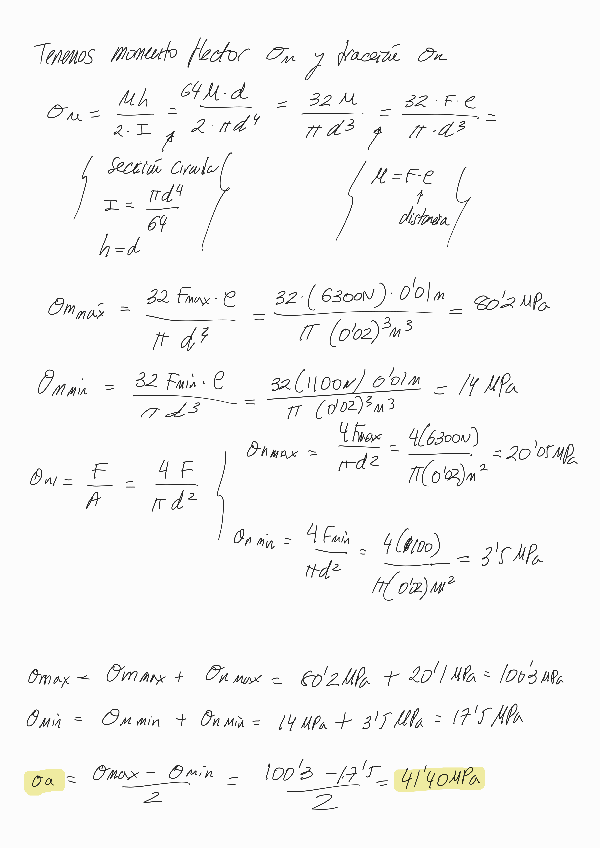 Tenemos momento flector σ_M y tracción σ_n
σ_M = Mh / 2·I = 64 M·d / 2·πd⁴ = 32 M / πd³ = 32·F·e / π·d³ =
Sección circular
I = πd⁴ / 64
h=d
M = F·e
distancia
σ_m máx = 32 Fmax·e / π d³ = 32·(6300N)·0'01m / π (0'02)³m³ = 80'2 MPa
σ_m min = 32 Fmin·e / π d³ = 32(1100N) 0'01m / π (0'02)³m³ = 14 MPa
σ_N = F / A = 4 F / πd²
σ_n max = 4 Fmax / πd2 = 4(6300N) / π(0'02)m² = 20'05 MPa
σ_n min = 4 Fmin / πd² = 4(1100) / π(0'02)m² = 3'5 MPa
σmax = σm max + σn max = 80'2 MPa + 20'1 MPa = 100'3 MPa
σmin = σm min + σn min = 14 MPa + 3'5 MPa = 17'5 MPa
σa = σmax − σmin / 2 = 100'3 − 17'5 / 2 = 41'40 MPa